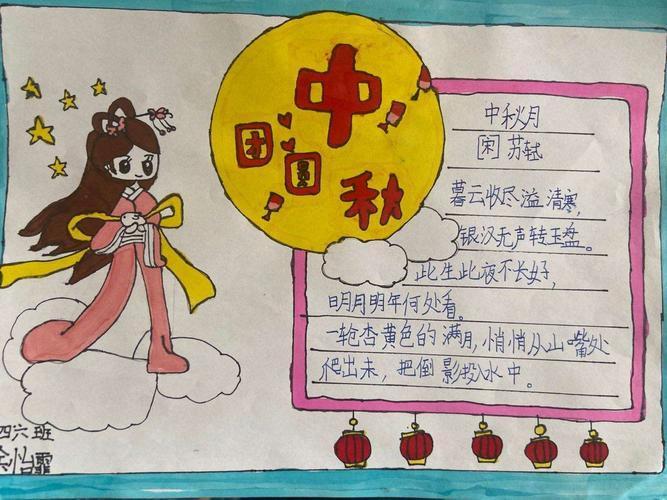 中
团圆
秋
中秋月
[宋] 苏轼
暮云收尽溢清寒,
银汉无声转玉盘。
此生此夜不长好,
明月明年何处看。
一轮杏黄色的满月,悄悄从山嘴处
爬出来,把倒影投入水中。
四六班
怡霏